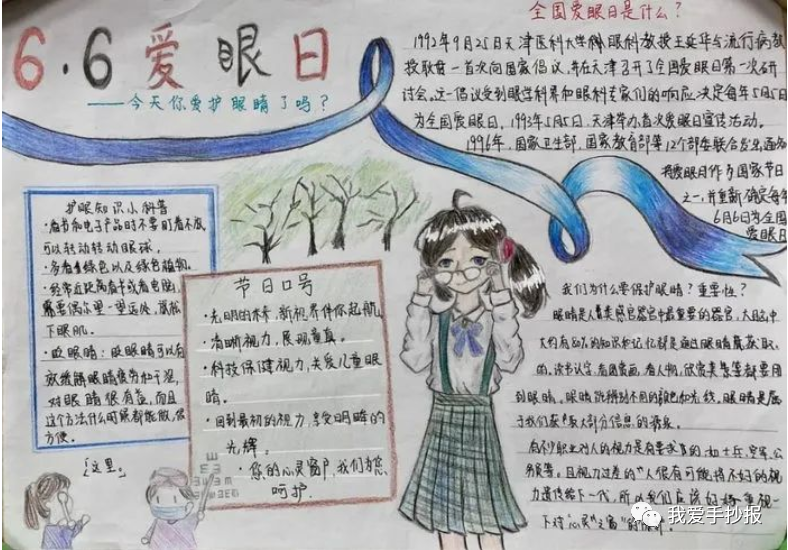 6.6爱眼日
——今天你爱护眼睛了吗？
全国爱眼日是什么？
1992年9月25日天津医科大学眼科教授王延华与流行病教
授耿贯一首次向国家倡议,并在天津召开了全国爱眼日第一次研
讨会。这一倡议受到眼学科界和眼科专家们的响应,决定每年5月5日
为全国爱眼日,1993年5月5日,天津举办首次爱眼日宣传活动。
1996年,国家卫生部,国家教育部等12个部委联合发出通知
将爱眼日作为国家节日
之一,并重新确定每年
6月6日为全国
爱眼日
护眼知识小科普
·看书和电子产品时不要盯着不放,
可以转动转动眼球。
·多看看绿色以及绿色植物。
·经常近距离看书或看电脑,
需要偶尔望一望远处,放松
下眼肌。
·眨眼睛:眨眼睛可以有
效缓解眼睛疲劳和干涩,
对眼睛很有益,而且
这个方法什么时候都能做,很
方便。
节日口号
·光明的未来,新视界伴你起航
·清晰视力,展现童真。
·科技保健视力,关爱儿童眼
睛。
·回到最初的视力,享受明眸的
光辉。
·您的心灵窗户,我们为您
呵护.
「这里。
我们为什么要保护眼睛？重要性？
眼睛是人类感官器官中最重要的器官,大脑中
大约有80%的知识和记忆都是通过眼睛获取
的。读书认字,看图赏画,看人物,欣赏美景等都要用
到眼睛。眼睛能辨别不同的颜色和光线。眼睛是属
于我们获取大部分信息的源泉。
有不少职业对人的视力是有要求的,如士兵,空军,公
务员等。且视力过差的人很有可能将不好的视
力遗传给下一代,所以我们应该好好重视一
下对"心灵之窗"的保护。
我爱手抄报